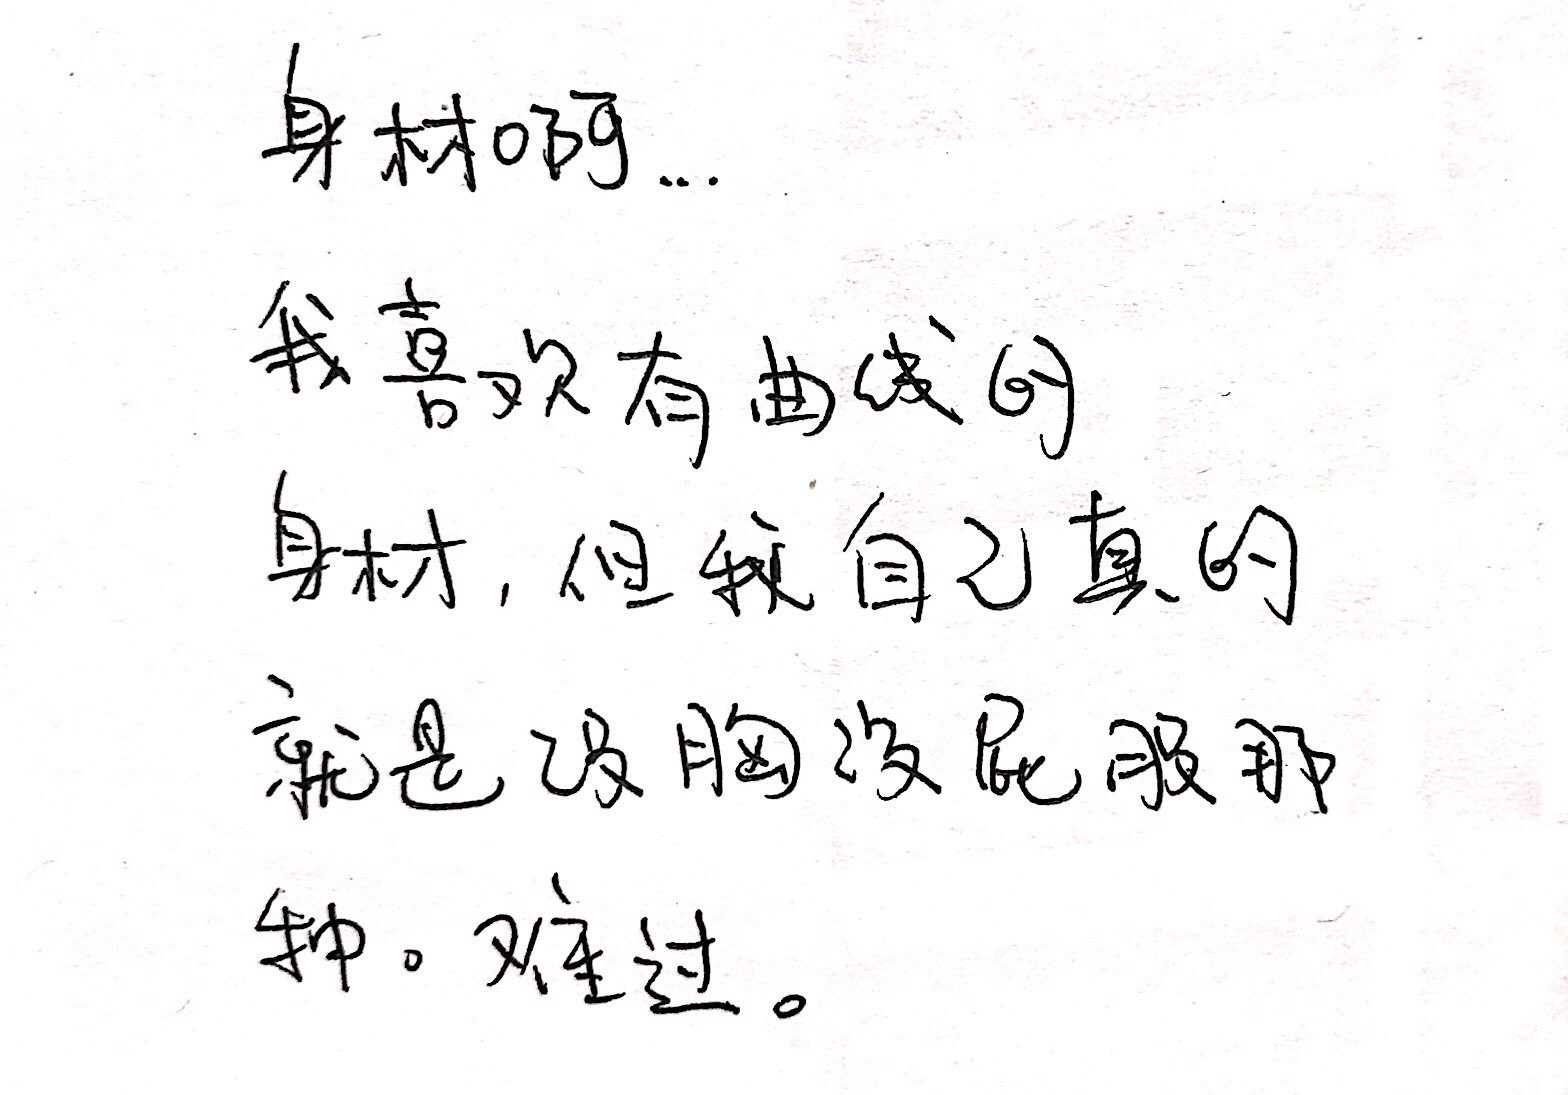 身材啊...
我喜欢有曲线的
身材,但我自己真的
就是没胸没屁股那
种。难过。